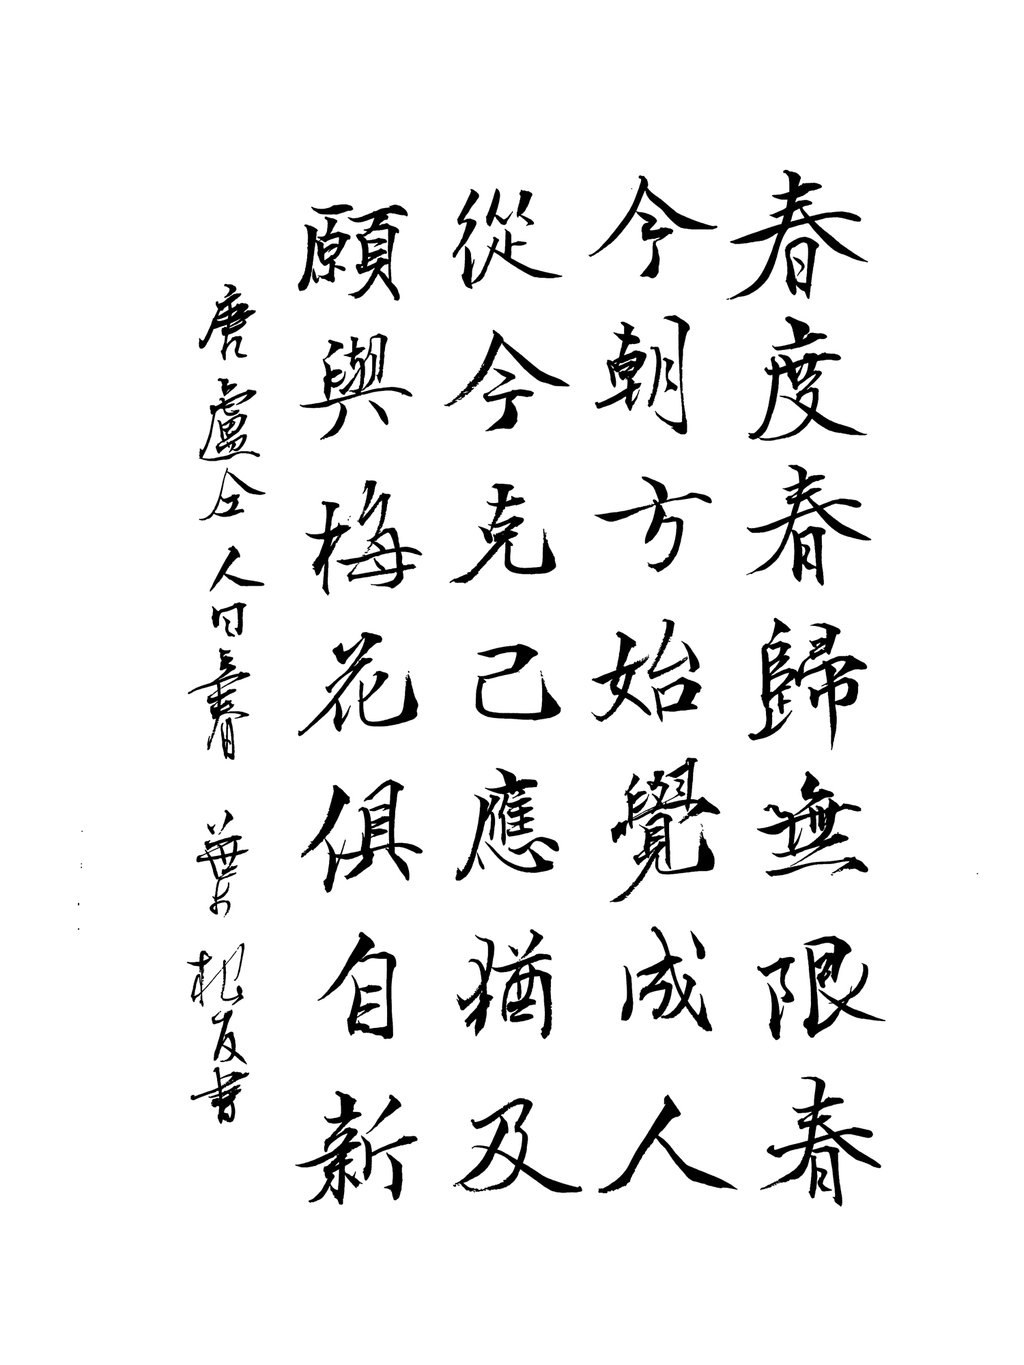 春度春歸無限春
今朝方始覺成人
從今克己應猶及
願與梅花俱自新
唐盧仝人日立春 葉根友書